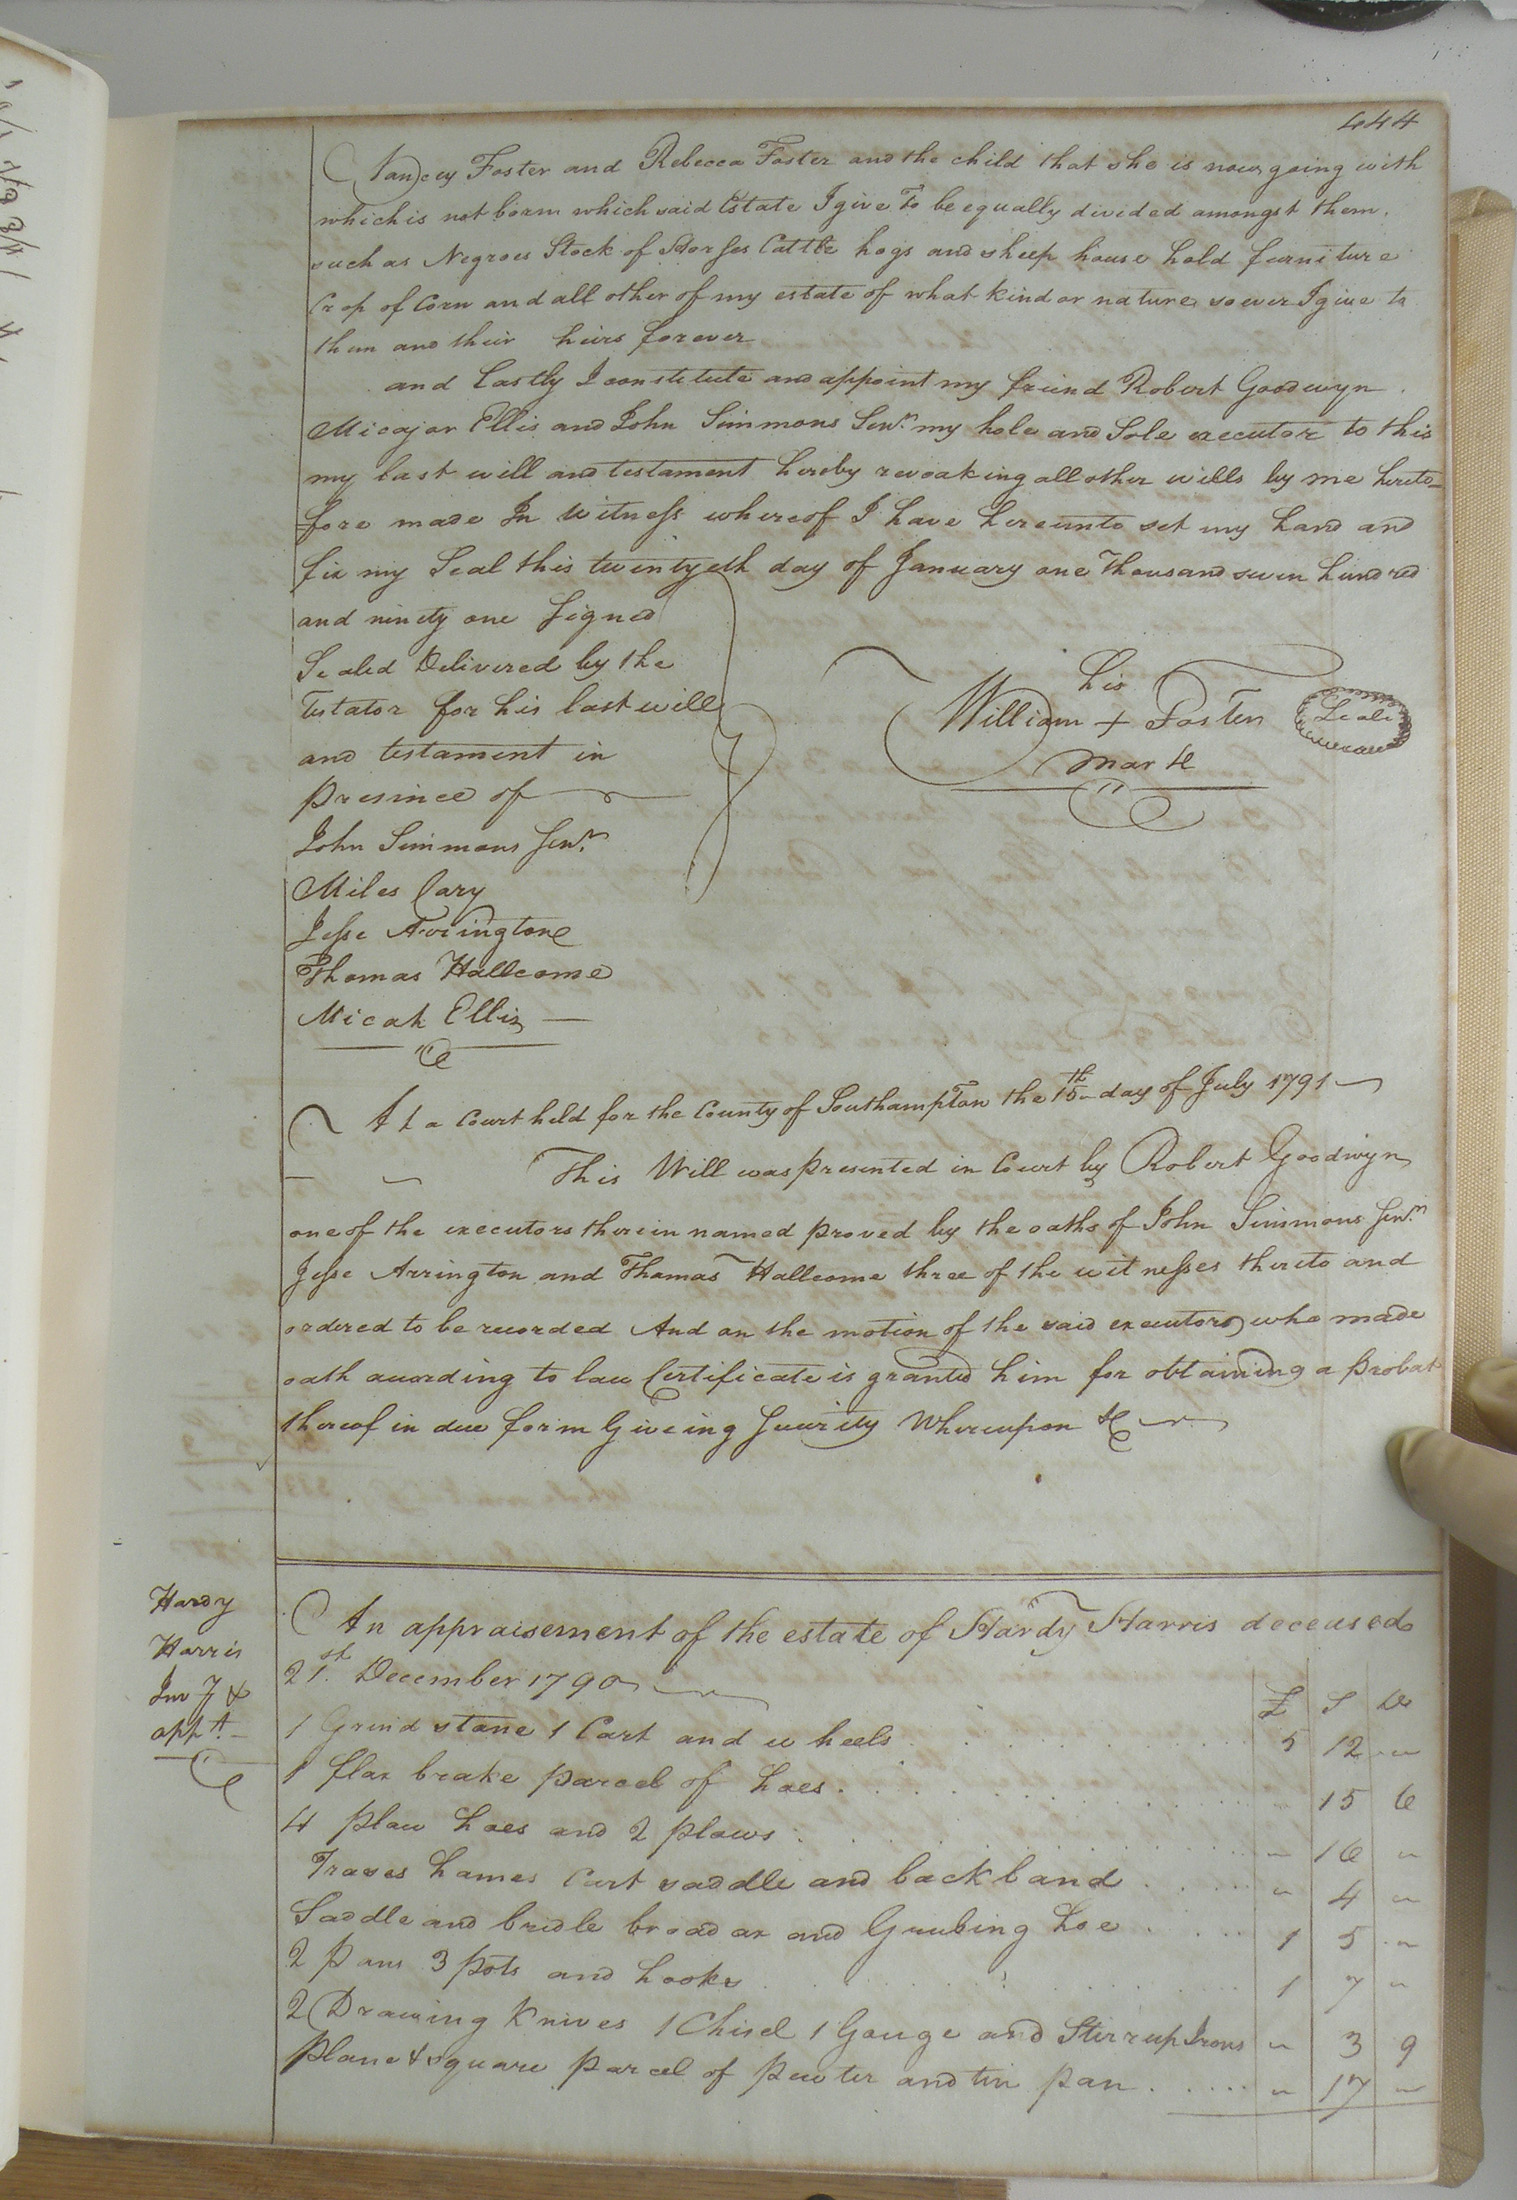 444
Nancey Foster and Rebecca Foster and the child that she is now going with
which is not born which said Estate I give To be equally divided amongst them.
such as Negroes Stock of Horses Cattle hogs and sheep house hold furniture
Crop of Corn and all other of my estate of what kind or nature soever I give to
them and their heirs forever
and Lastly I constitute and appoint my friend Robert Goodwyn
Micajor Ellis and John Simmons Senr. my hole and Sole executor to this
my last will and testament hereby revoaking all other wills by me hereto-
fore made In Witness whereof I have hereunto set my hand and
fix my Seal this twentyeth day of January one Thousand seven hundred
and ninety one Signed
Sealed Delivered by the
Testator for his last will
and testament in
presince of
John Simmons Senr.
Miles Cary
Jesse Arrington
Thomas Hallcome
Micah Ellis
his
William + Foster Seal
mark
At a Court held for the County of Southampton the 15th day of July 1791
This Will was presented in Court by Robert Goodwyn
one of the executors therein named proved by the oaths of John Simmons Senr.
Jesse Arrington and Thomas Hallcome three of the witnesses thereto and
ordered to be recorded And on the motion of the said executors who made
oath according to law Certificate is granted him for obtaining a probat
thereof in due form Giveing Security Whereupon &c
Hardy
Harris
Inv.y &
appt.
An appraisement of the estate of Hardy Harris deceased
21st. December 1790
£ S D
1 Grind stone 1 Cart and wheels 5 12 "
1 flax brake parcel of hoes " 15 6
4 plow hoes and 2 plows " 16 "
Traces hames Cart saddle and backband " 4 "
Saddle and bridle broad ax and Grubing hoe 1 5 "
2 pans 3 pots and hooks 1 7 "
2 Drawing Knives 1 Chisel 1 Gouge and Stirrup Irons " 3 9
plane & square parcel of pewter and tin pan " 17 "